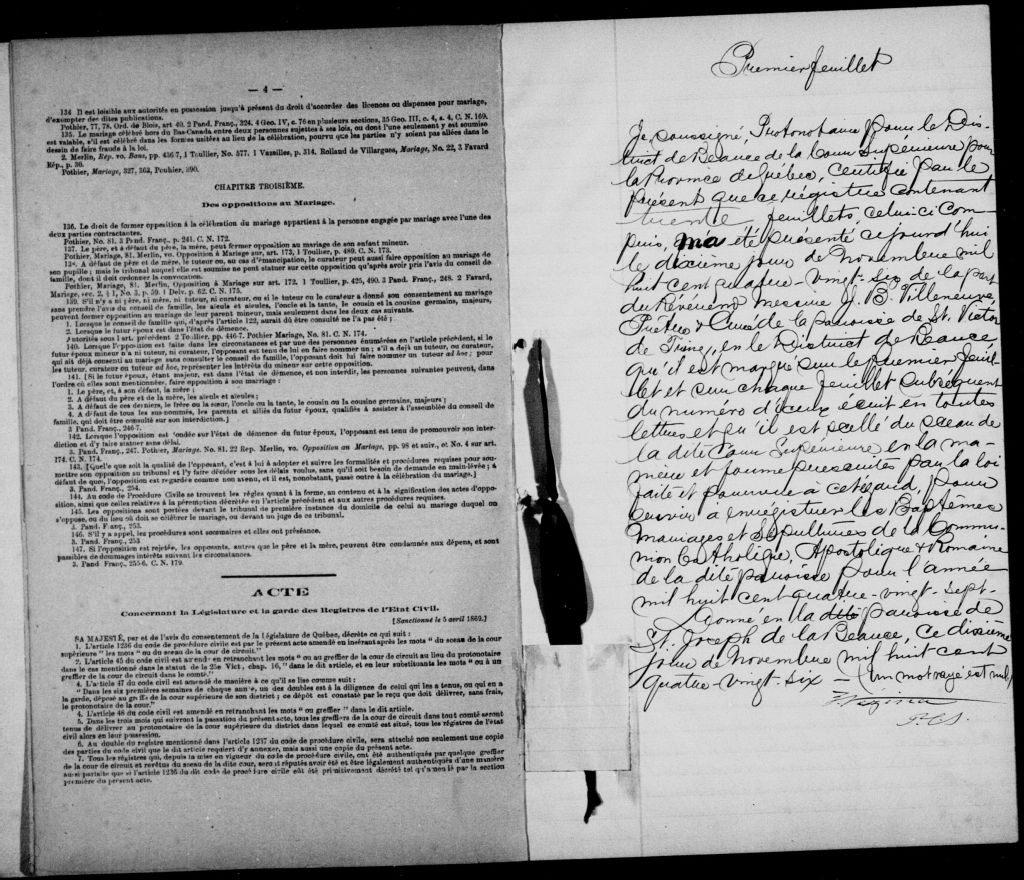 — 4 —
134 Il est loisible aux autorités en possession jusqu'à présent du droit d'accorder des licences ou dispenses pour mariage,
d'exempter des dites publications.
Pothier, 77, 78. Ord. de Blois, art 40. 2 Pand. Franç., 324. 4 Geo. IV, c. 76 en plusieurs sections, 35 Geo. III, c. 4, s. 4, C. N. 169.
135. Le mariage célébré hors du Bas-Canada entre deux personnes sujettes à ses lois, ou dont l'une seulement y est soumise
est valable, s'il est célébré dans les formes usitées au lieu de la célébration, pourvu que les parties n'y soient pas allées dans le
dessin de faire fraude à la loi.
2. Merlin, Rép. vo. Bans, pp. 436 7, 1 Toullier, No. 577. 1 Vazeilles, p. 314. Rolland de Villargues, Mariage, No. 22, 3 Favard
Rép., p. 30.
Pothier, Mariage, 327, 363, Pouhier, 590.
CHAPITRE TROISIÈME.
Des oppositions au Mariage.
136. Le droit de former opposition à la célébration du mariage appartient à la personne engagée par mariage avec l'une des
deux parties contractantes.
Pothier, No. 81. 3 Pand. Franç., p. 241. C. N. 172.
137. Le père, et à défaut du père, la mère, peut former opposition au mariage de son enfant mineur.
Pothier, Mariage, 81. Merlin, vo. Opposition à Mariage, sur art. 173, 1 Toullier, p. 489, C. N. 173.
138. A défaut de père et de mère, le tuteur ou, au cas d'émancipation, le curateur peut aussi faire opposition au mariage de
son pupille ; mais le tribunal auquel elle est soumise ne peut statuer sur cette opposition qu'après avoir pris l'avis du conseil de
famille, dont il doit ordonner la convocation.
Pothier, Mariage, 81. Merlin, Opposition à Mariage sur art. 172. 1 Toullier, p. 425, 490. 3 Pand. Franç., 248. 2 Favard,
Mariage, sec. 2, § 1, No. 3, p. 59. 1 Delv. p. 62. C. N. 175.
139. S'il n'y a ni père, ni mère, ni tuteur, ni curateur, ou si le tuteur ou le curateur a donné son consentement au mariage
sans prendre l'avis du conseil de famille, les aïeuls et aïeules, l'oncle et la tante, le cousin et la cousine germains, majeurs,
peuvent former opposition au mariage de leur parent mineur, mais seulement dans les deux cas suivants.
1. Lorsque le conseil de famille qui, d'après l'article 122, aurait dû être consulté ne l'a pas été ;
2. Lorsque le futur époux est dans l'état de démence.
Autorités sous l'art précédent 2 Toullier, pp. 446-7. Pothier Mariage, No. 81. C. N. 174.
140. Lorsque l'opposition est faite dans les circonstances et par une des personnes énumérées en l'article précédent, si le
futur époux mineur n'a ni tuteur, ni curateur, l'opposant est tenu de lui en faire nommer un ; s'il a déjà un tuteur, ou curateur,
qui ait déjà consenti au mariage sans consulter le conseil de famille, l'opposant doit lui faire nommer un tuteur ad hoc ; pour
les tuteur, curateur ou tuteur ad hoc, représenter les intérêts du mineur sur cette opposition.
141. [Si le futur époux, étant majeur, est dans l'état de démence, et non interdit, les personnes suivantes peuvent, dans
l'ordre où elles sont mentionnées, faire opposition à son mariage :
1. Le père, et, à son défaut, la mère ;
2. A défaut du père et de la mère, les aïeuls et aïeules ;
3. A défaut de ces derniers, le frère ou la sœur, l'oncle ou la tante, le cousin ou la cousine germains, majeurs ;
4. A défaut de tous les sus-nommés, les parents et alliés du futur époux, qualifiés à assister à l'assemblée du conseil de
famille, qui doit être consulté sur son interdiction.]
3 Pand. Franç., 246-7.
142. Lorsque l'opposition est fondée sur l'état de démence du futur époux, l'opposant est tenu de promouvoir son inter-
diction et d'y faire statuer sans délai.
3. Pand. Franç., 247. Pothier, Mariage, No. 81. 22 Rep. Merlin, vo. Opposition au Mariage, pp. 98 et suiv., et No. 4 sur art.
174. C. N. 174.
143. [Quelle que soit la qualité de l'opposant, c'est à lui à adopter et suivre les formalités et procédures requises pour sou-
mettre son opposition au tribunal et l'y faire décider dans les délais voulus, sans qu'il soit besoin de demande en main-levée ; à
défaut de quoi, l'opposition est regardée comme non avenu, et il est, nonobstant, passé outre à la célébration du mariage.]
3. Pand. Franç., 254.
144. Au code de Procédure Civile se trouvent les règles quant à la forme, au contenu et à la signification des actes d'oppo-
sition, ainsi que celles relatives à la péremption décrétée en l'article précédent et aux autres procédures requises.
145. Les oppositions sont portées devant le tribunal de première instance du domicile de celui au mariage duquel on
s'oppose, ou du lieu où doit se célébrer le mariage, ou devant un juge de ce tribunal.
3. Pand. Franç., 253.
146. S'il y a appel, les procédures sont sommaires et ont préséance.
3. Pand. Franç., 253
147. Si l'opposition est rejetée, les opposants, autres que le père et la mère, peuvent être condamnés aux dépens, et sont
passibles de dommages intérêts suivant les circonstances.
3. Pand. Franç., 255-6. C. N. 179.
ACTE
Concernant la Législature et la garde des Registres de l'Etat Civil.
[Sanctionné le 5 avril 1869.]
SA MAJESTÉ, par et de l'avis du consentement de la Législature de Québec, décrète ce qui suit :
1. L'article 1236 du code de procédure civile est par le présent acte amendé en insérant après les mots " du sceau de la cour
supérieure " les mots " ou du sceau de la cour de circuit."
2. L'article 45 du code civil est amendé en retranchant les mots " ou au greffier de la cour de circuit au lieu du protonotaire
dans le cas mentionné dans le statut de la 25e Vict, chap. 16, " dans le dit article, et en leur substituants les mots " ou à un
greffier de la cour de circuit dans le comté."
4. L'article 47 du code civil est amendé de manière à ce qu'il se lise comme suit :
" Dans les six premières semaines de chaque année, un des doubles est à la diligence de celui qui les a tenus, ou qui en a
la garde, déposé au greffe de la cour supérieure de son district ; ce dépôt est constaté par le reçu que doit délivrer, sans frais,
le protonotaire de la cour."
4. L'article 48 du code civil est amendé en retranchant les mots " ou greffier " dans le dit article.
5. Dans les trois mois qui suivront la passation du présent acte, tous les greffiers de la cour de circuit dans tout comté seront
tenus de délivrer au protonotaire de la cour supérieure du district dans lequel ce comté est situé, tous les registres de l'état
civil alors en leur possession.
6. Au double du registre mentionné dans l'article 1237 du code de procédure civile, sera attaché non seulement une copie
des parties du code civile que le dit article requiert d'y annexer, mais aussi une copie du présent acte.
7. Tous les régistres qui, depuis la mise en vigueur du code de procédure civile, ont été authentiqués par quelque greffier
de la cour de circuit et revêtus du sceau de la dite cour, seront réputés avoir été et être légalement authentiqués d'une manière
aussi parfaite que si l'article 1236 du dit code de procédure civile eût été primitivement décrété tel qu'amendé par la section
première du présent acte.
Premier feuillet
Je, soussigné, Protonotaire pour le Dis-
trict de Beauce de la Cour Supérieure pour
la Province de Québec, certifie par le
présent que ce régistre contenant
trente feuillets, celui-ci com-
pris, m'a été présenté ce jourd'hui
le dixième jour de Novembre mil
huit cent quatre-vingt-six de la part
du Révérend messire J. B. Villeneuve
Prêtre & Curé de la paroisse de St. Victor
de Tring, en le District de Beauce,
qu'il est marqué sur le premier feuil-
let et sur chaque feuillet subséquent
du numéro d'iceux écrit en toutes
lettres et qu'il est scellé du sceau de
la dite Cour Supérieure en la ma-
nière et forme prescrites par la loi
faite et pourvue à cet égard, pour
servir à enregistrer les Baptêmes
Mariages et Sépultures de la Commu-
nion Catholique, Apostolique & Romaine
de la dite paroisse pour l'année
mil huit cent quatre-vingt-sept.
Donné en la dite paroisse de
St. Joseph de la Beauce, ce dixième
jour de Novembre mil huit cent
quatre-vingt-six — (un mot rayé est nul)
P.C.S.